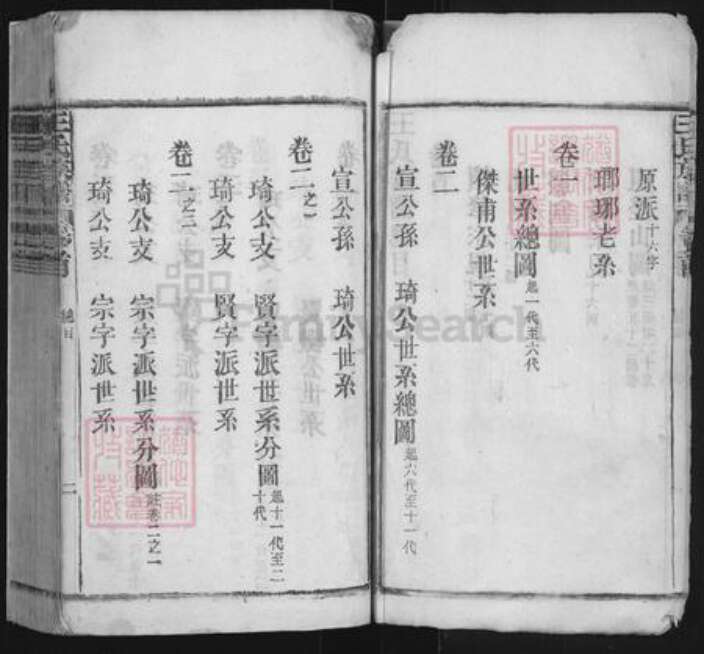 原派十六字
瑯琊老系
卷一
世系總圖起一代至六代
傑甫公世系
卷二
宣公孫 琦公世系總圖起六代至十一代
宣公孫 琦公世系
卷二之一
琦公支 賢字派世系分圖起十一代至二十代
琦公支 賢字派世系
卷二之二
琦公支 宗字派世系分圖註卷二之一
琦公支 宗字派世系
二
FamilySearch